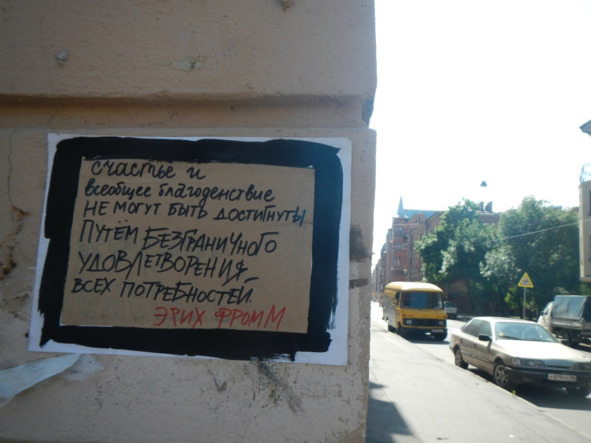 счастье и
всеобщее благоденствие
НЕ МОГУТ БЫТЬ ДОСТИГНУТЫ
ПУТЁМ БЕЗГРАНИЧНОГО
УДОВЛЕТВОРЕНИЯ
ВСЕХ ПОТРЕБНОСТЕЙ.
ЭРИХ ФРОММ